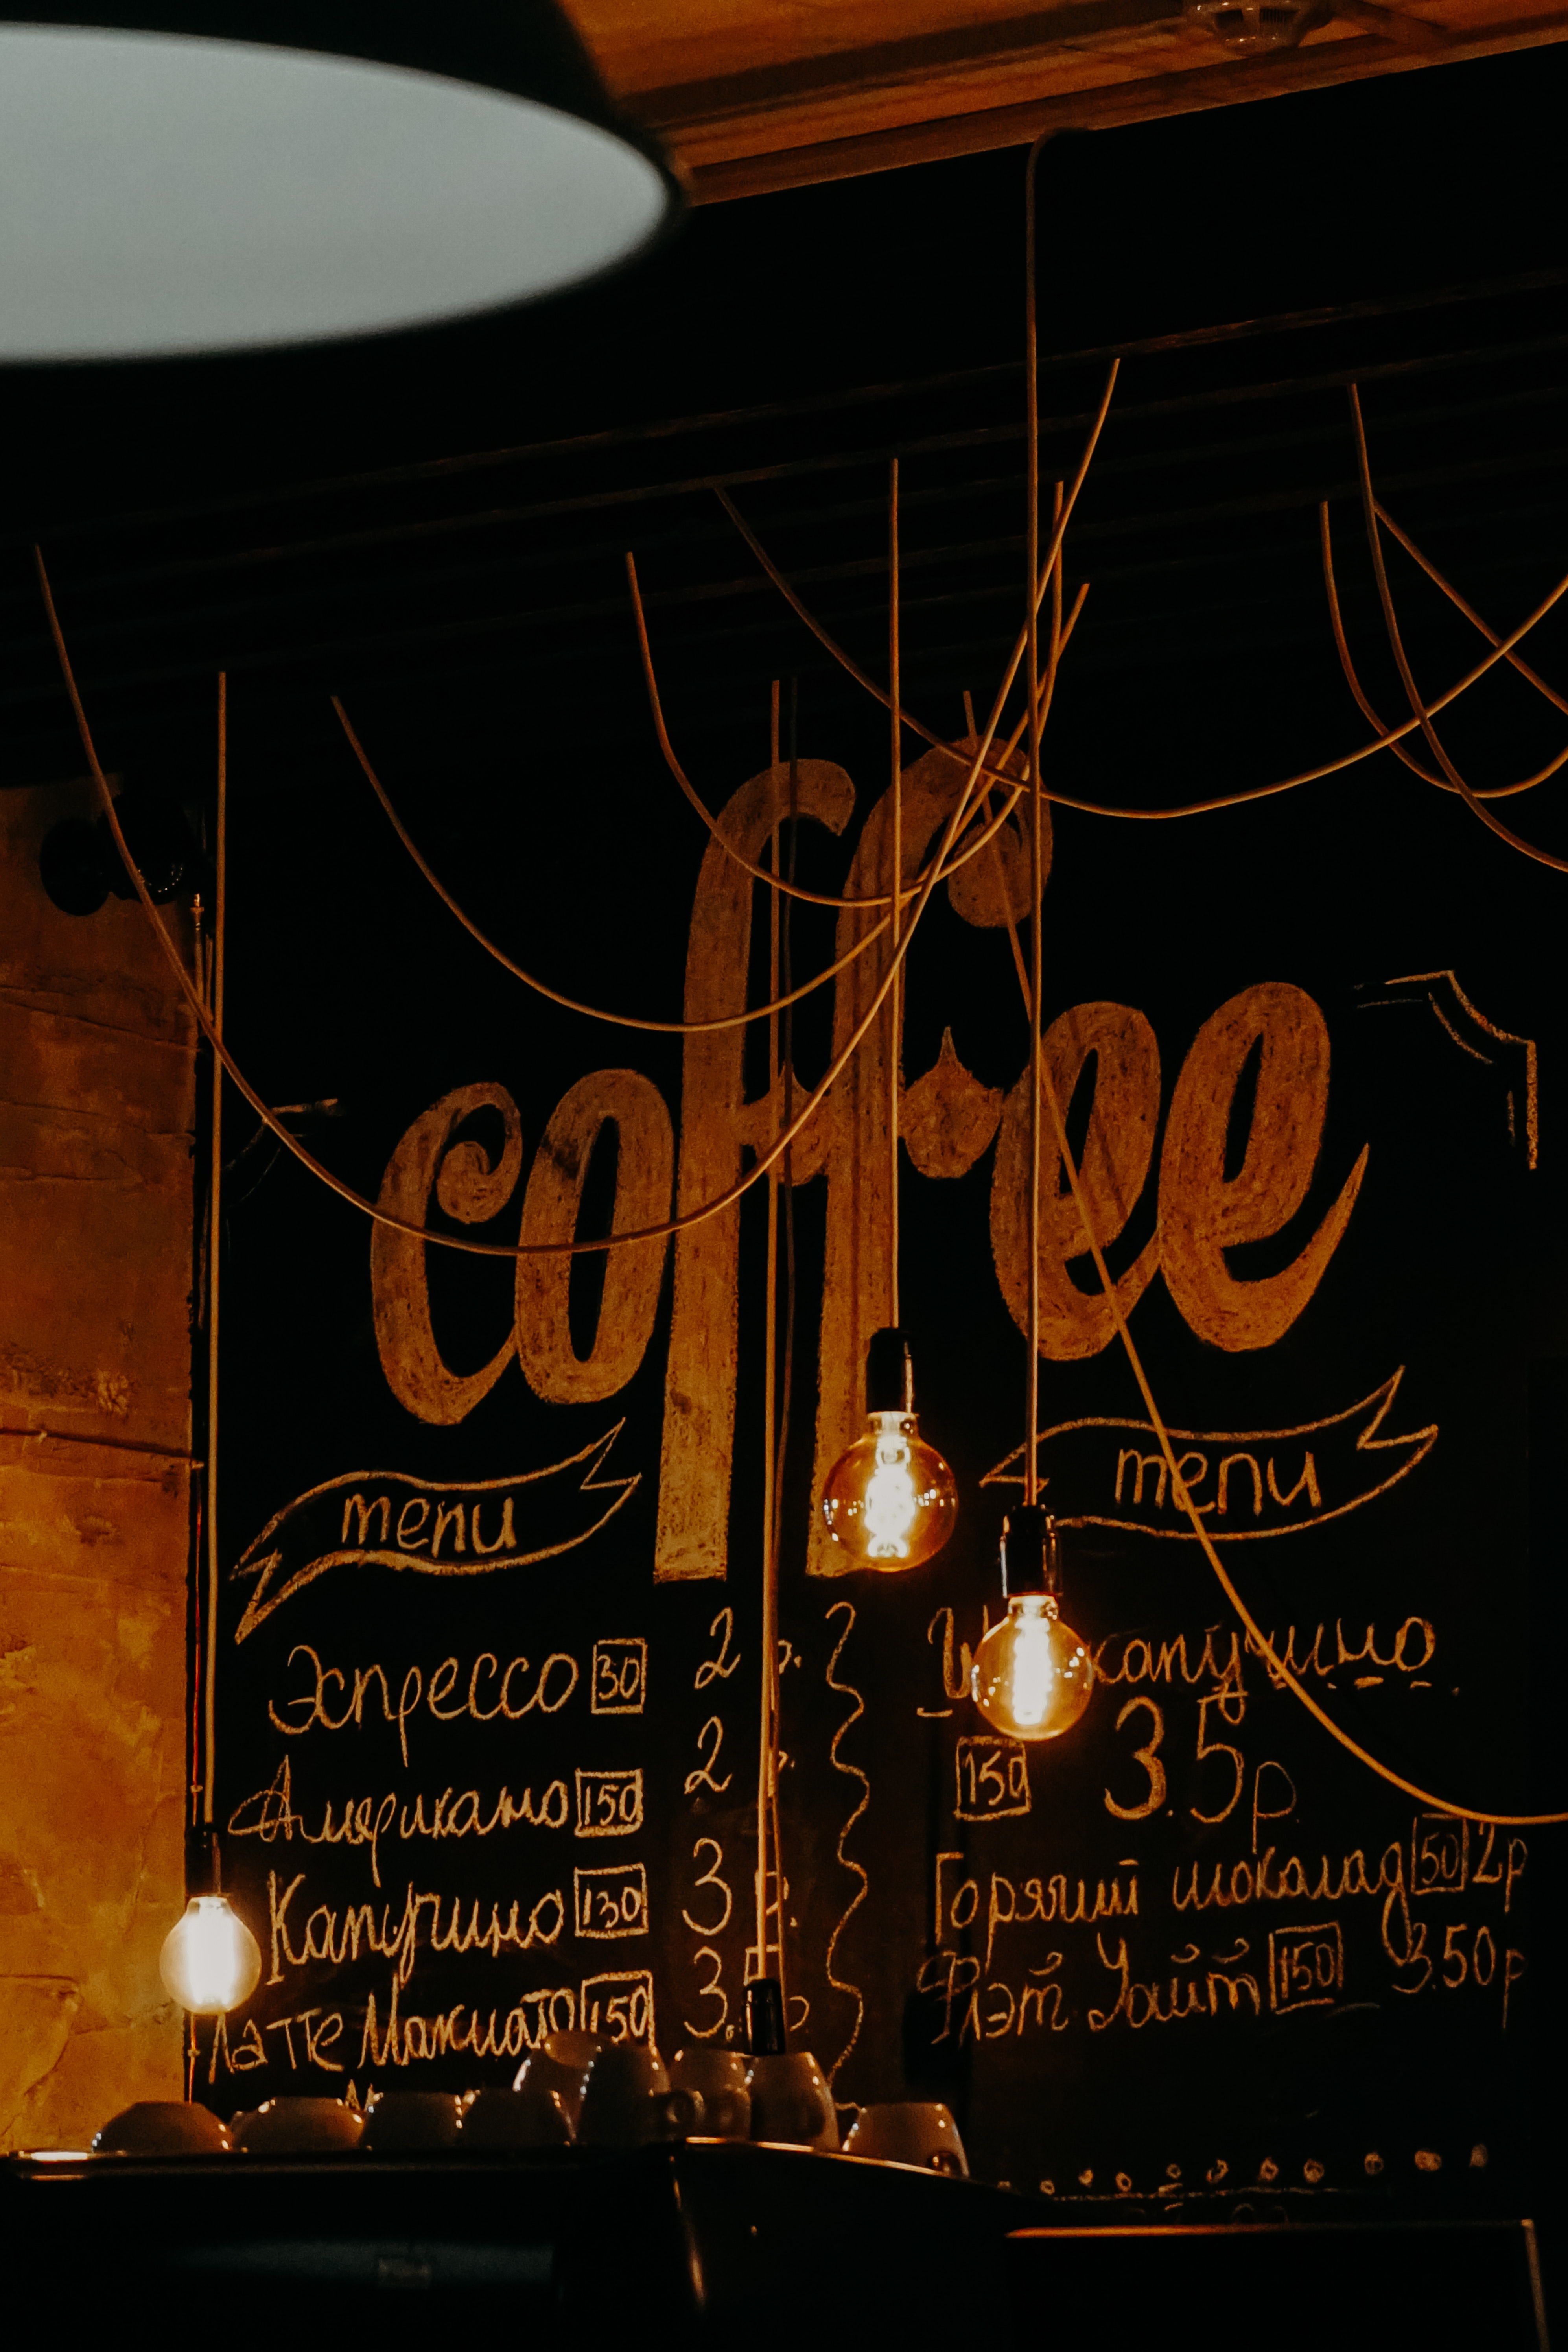 coffee
menu
Эспрессо 30 2 р.
Американо 150 2 р.
Капучино 130 3 р.
Латте Макиато 150 3.
menu
капучино
150 3.5р
Горячий шоколад 50 2р
Флэт Уайт 150 3.50р